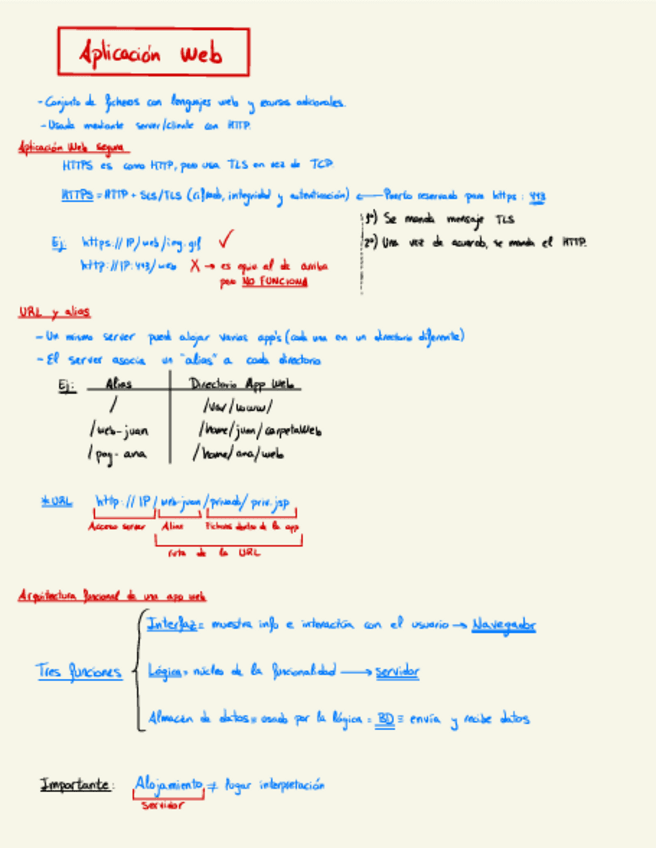 Aplicación Web
- Conjunto de ficheros con lenguajes web y recursos adicionales.
- Usada mediante server/cliente con HTTP.
Aplicación Web segura
HTTPS es como HTTP, pero usa TLS en vez de TCP.
HTTPS = HTTP + SLS/TLS (cifrado, integridad y autenticación) ← Puerto reservado para https: 443
1º) Se manda mensaje TLS
2º) Una vez de acuerdo, se manda el HTTP.
Ej: https://IP/web/img.gif ✓
http://IP:443/web X → es equiv al de arriba
pero NO FUNCIONA
URL y alias
- Un mismo server puede alojar varias app's (cada una en un directorio diferente)
- El server asocia un "alias" a cada directorio
Ej: Alias Directorio App Web
/ /var/www/
/web-juan /home/juan/carpetaWeb
/pag-ana /home/ana/web
*URL http://IP/web-juan/privado/priv.jsp
Acceso server Alias Ficheros dentro de la app
ruta de la URL
Arquitectura funcional de una app web
Interfaz = muestra info e interactúa con el usuario → Navegador
Tres funciones
Lógica = núcleo de la funcionalidad → servidor
Almacén de datos = usado por la lógica = BD ≡ envía y recibe datos
Importante: Alojamiento ≠ lugar interpretación
servidor